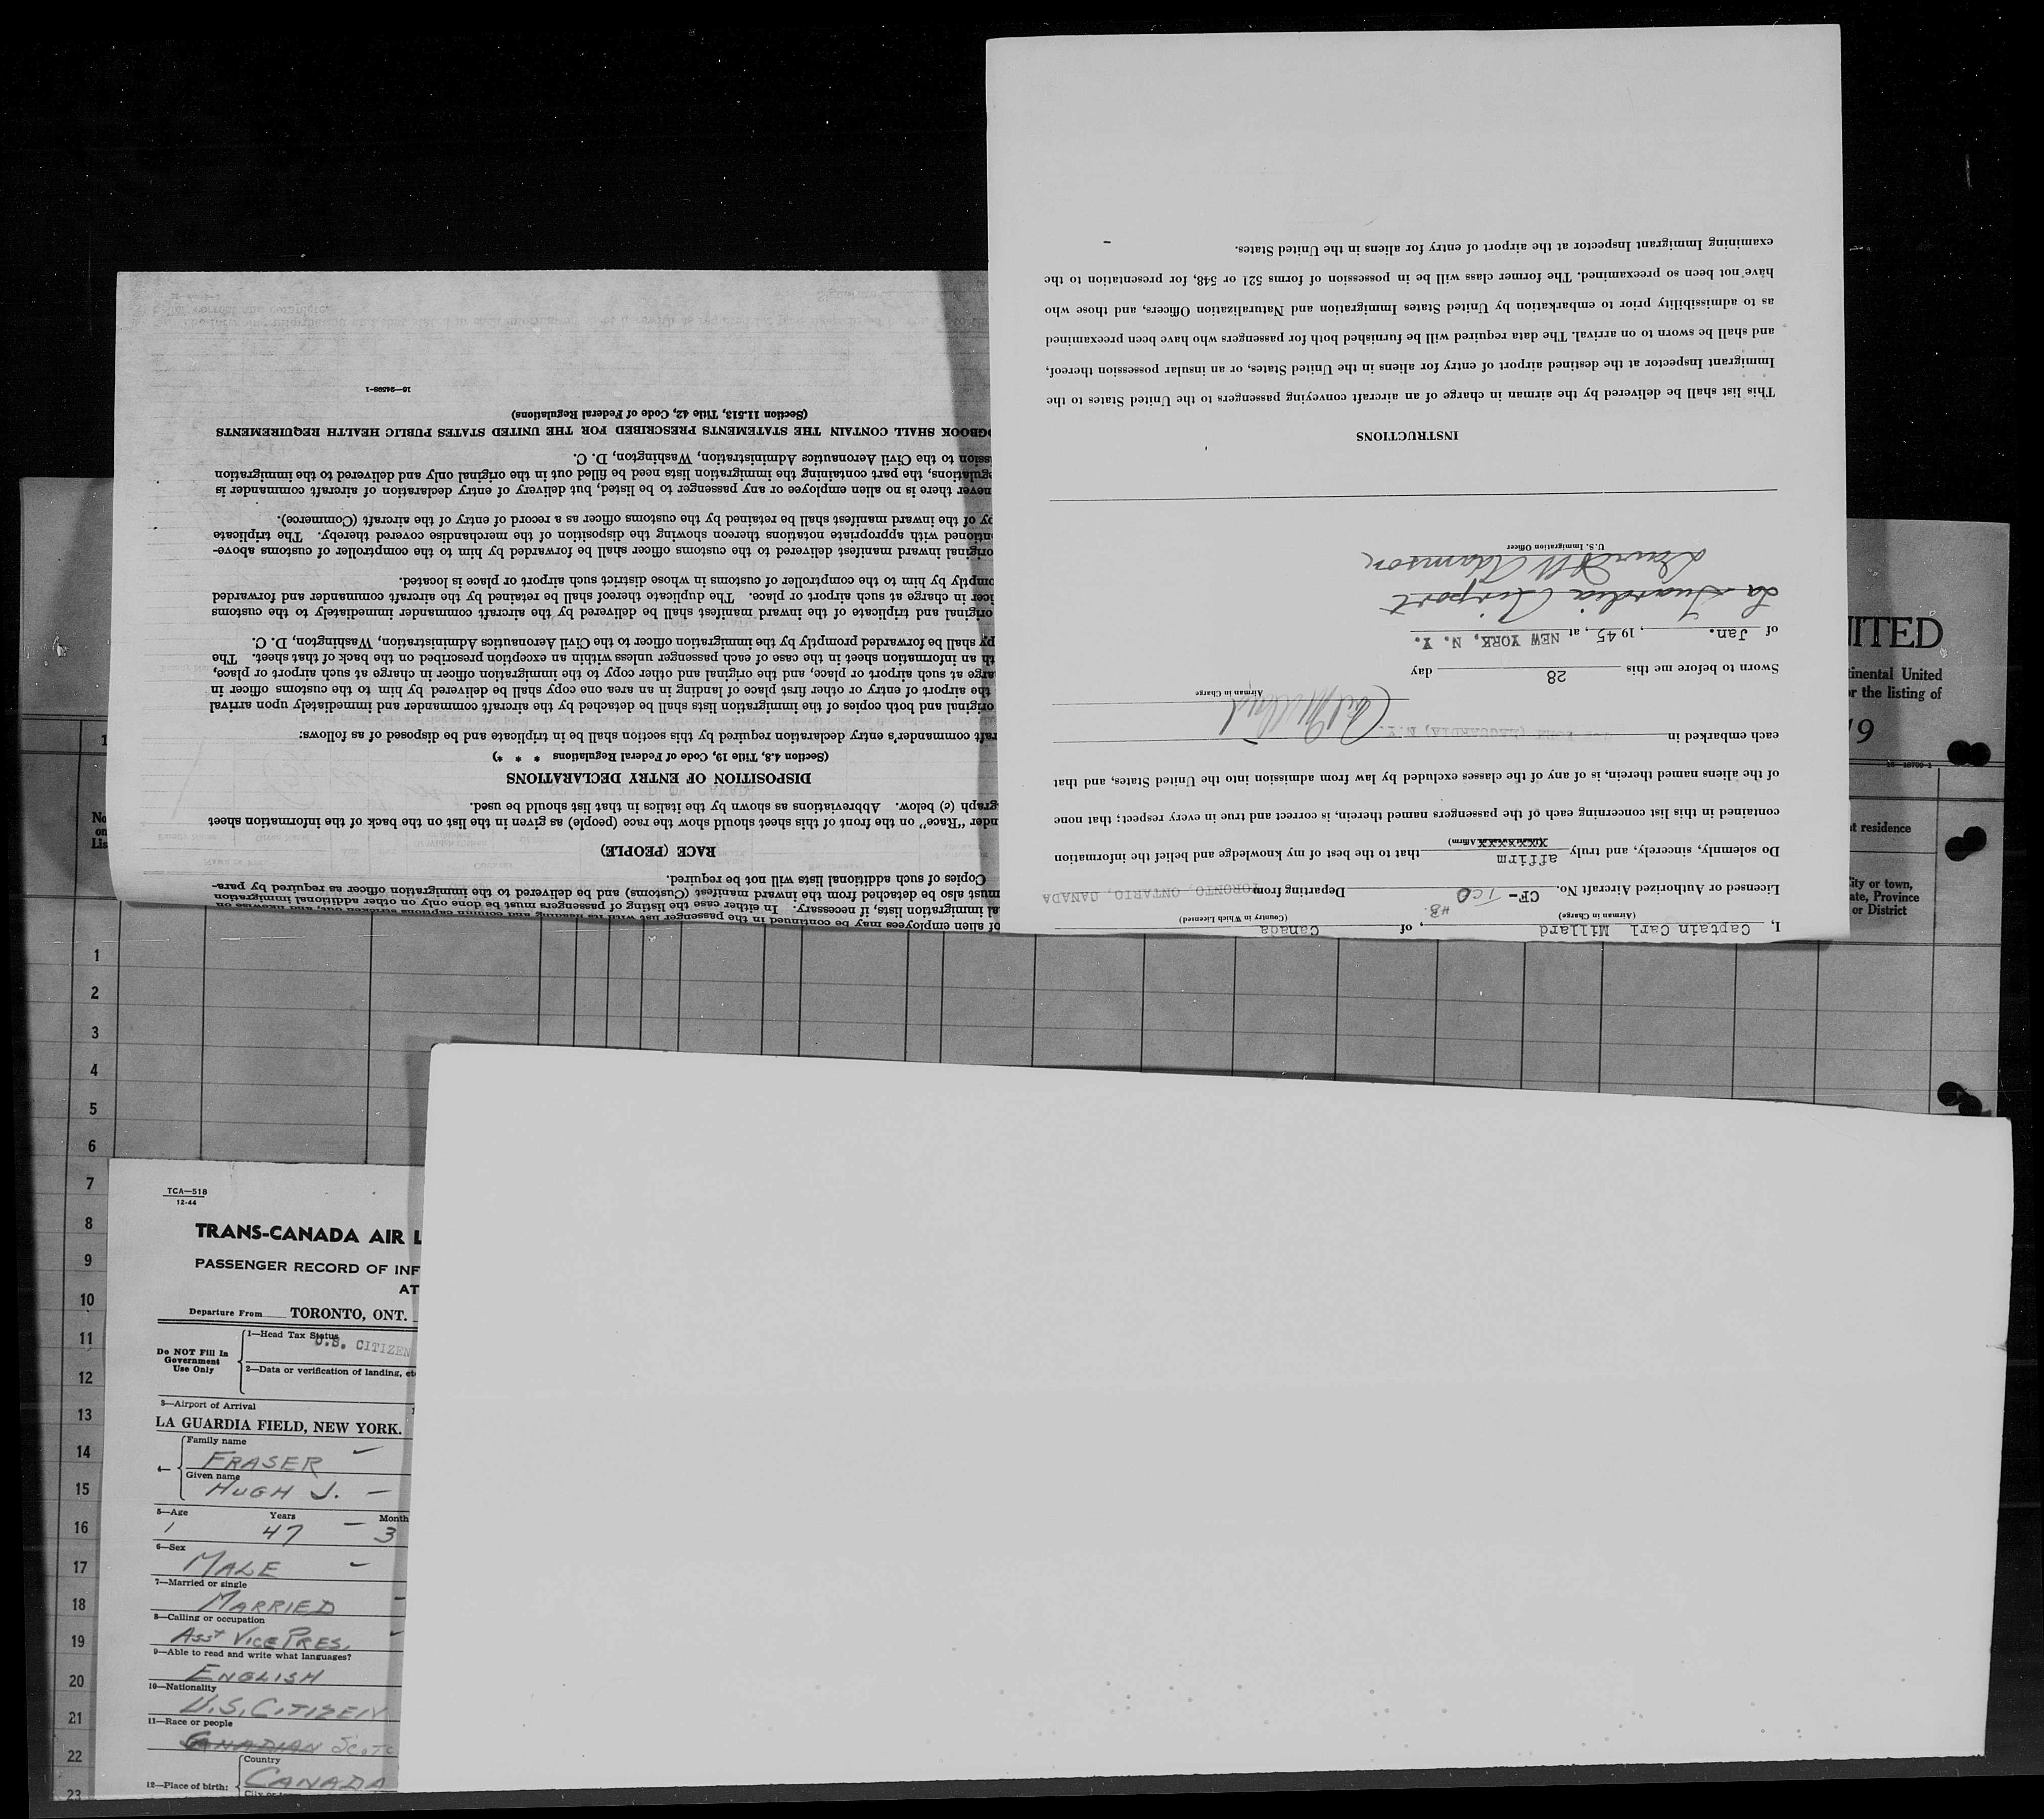 I, Captain Carl Millard, of Canada
(Airman in Charge) (Country in Which Licensed)
Licensed or Authorized Aircraft No. CF- TCO Departing from TORONTO, ONTARIO, CANADA
HB.
Do solemnly, sincerely, and truly affirm that to the best of my knowledge and belief the information
Affirm)
contained in this list concerning each of the passengers named therein, is correct and true in every respect; that none
of the aliens named therein, is of any of the classes excluded by law from admission into the United States, and that
each embarked in LAGUARDIA, N.Y.
Carl Millard
Airman in Charge
Sworn to before me this 28 day
of Jan., 1945, at NEW YORK, N. Y.
La Guardia Airport
David W Adamson
U. S. Immigration Officer
INSTRUCTIONS
This list shall be delivered by the airman in charge of an aircraft conveying passengers to the United States to the
Immigrant Inspector at the destined airport of entry for aliens in the United States, or an insular possession thereof,
and shall be sworn to on arrival. The data required will be furnished both for passengers who have been preexamined
as to admissibility prior to embarkation by United States Immigration and Naturalization Officers, and those who
have not been so preexamined. The former class will be in possession of forms 521 or 548, for presentation to the
examining Immigrant Inspector at the airport of entry for aliens in the United States.
of alien employees may be continued in the passenger list with its heading and column captions
al immigration lists, if necessary. In either case the listing of passengers must be done only on other additional immigration
must also be detached from the inward manifest (Customs) and be delivered to the immigration officer as required by para-
Copies of such additional lists will not be required.
RACE (PEOPLE)
nder "Race" on the front of this sheet should show the race (people) as given in the list on the back of the information sheet
graph (c) below. Abbreviations as shown by the italics in that list should be used.
DISPOSITION OF ENTRY DECLARATIONS
(Section 4.8, Title 19, Code of Federal Regulations * * *)
raft commander's entry declaration required by this section shall be in triplicate and be disposed of as follows:
original and both copies of the immigration lists shall be detached by the aircraft commander and immediately upon arrival
the airport of entry or other first place of landing in an area one copy shall be delivered by him to the customs officer in
arge at such airport or place, and the original and other copy to the immigration officer in charge at such airport or place,
th an information sheet in the case of each passenger unless within an exception prescribed on the back of that sheet. The
py shall be forwarded promptly by the immigration officer to the Civil Aeronautics Administration, Washington, D. C.
original and triplicate of the inward manifest shall be delivered by the aircraft commander immediately to the customs
icer in charge at such airport or place. The duplicate thereof shall be retained by the aircraft commander and forwarded
omptly by him to the comptroller of customs in whose district such airport or place is located.
original inward manifest delivered to the customs officer shall be forwarded by him to the comptroller of customs above-
ntioned with appropriate notations thereon showing the disposition of the merchandise covered thereby. The triplicate
py of the inward manifest shall be retained by the customs officer as a record of entry of the aircraft (Commerce).
never there is no alien employee or any passenger to be listed, but delivery of entry declaration of aircraft commander is
egulations, the part containing the immigration lists need be filled out in the original only and delivered to the immigration
ission to the Civil Aeronautics Administration, Washington, D. C.
OGBOOK SHALL CONTAIN THE STATEMENTS PRESCRIBED FOR THE UNITED STATES PUBLIC HEALTH REQUIREMENTS
(Section 11.513, Title 42, Code of Federal Regulations)
16—24598-1
ITED
tinental United
r the listing of
19
16—10700-1
t residence
City or town,
ate, Province
or District
1
No
on
Lis
1
2
3
4
5
6
7
8
9
10
11
12
13
14
15
16
17
18
19
20
21
22
23
TCA—518
12-44
TRANS-CANADA AIR L
PASSENGER RECORD OF INF
AT
Departure From TORONTO, ONT.
Do NOT Fill In
Government
Use Only
1—Head Tax Status
U.S. CITIZEN
2—Data or verification of landing, et
3—Airport of Arrival
LA GUARDIA FIELD, NEW YORK.
4—
Family name
FRASER
Given name
HUGH J.
5—Age Years Month
1 47 3
6—Sex
MALE
7—Married or single
MARRIED
8—Calling or occupation
Asst VICE PRES.
9—Able to read and write what languages?
ENGLISH
10—Nationality
U.S. CITIZEN
11—Race or people
CANADIAN SCOTC
12—Place of birth:
Country
CANADA